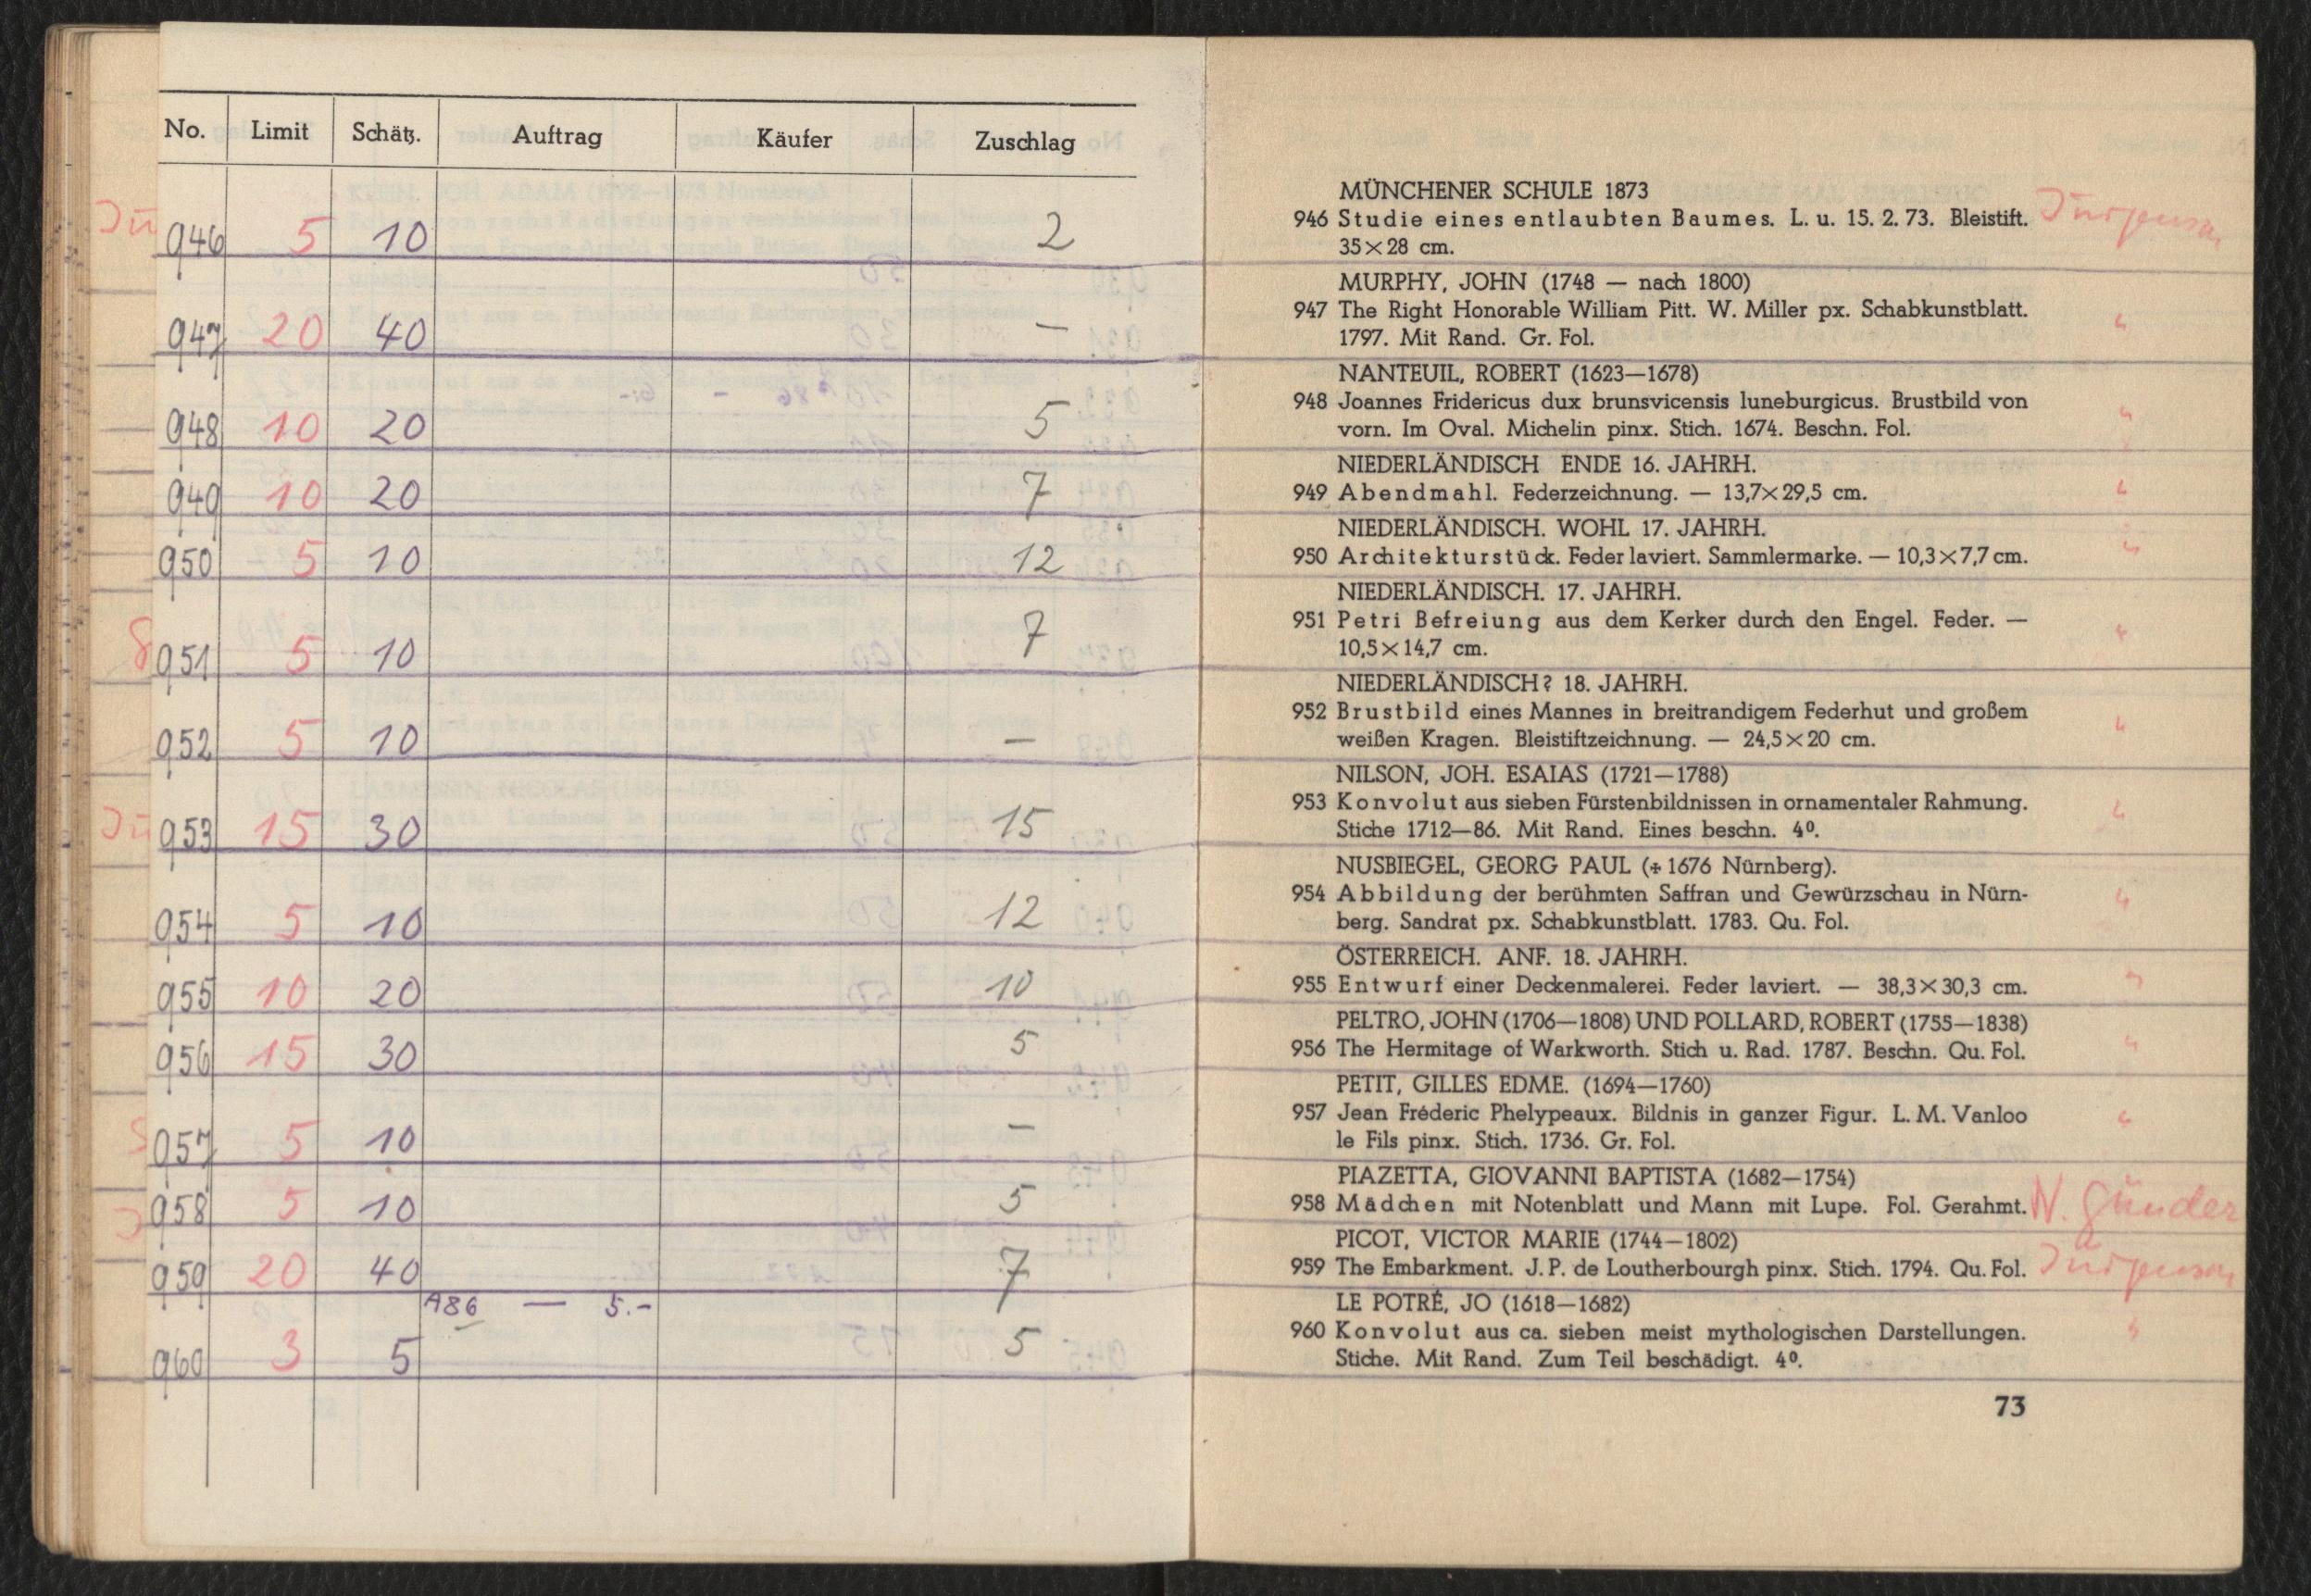 No. Limit Schätz. Auftrag Käufer Zuschlag
946 5 10 2
947 20 40 –
948 10 20 5
949 10 20 7
950 5 10 12
951 5 10 7
952 5 10 –
953 15 30 15
954 5 10 12
955 10 20 10
956 15 30 5
957 5 10 –
958 5 10 5
959 20 40 7
A86 — 5.-
960 3 5 5
MÜNCHENER SCHULE 1873
946 Studie eines entlaubten Baumes. L. u. 15. 2. 73. Bleistift. Jürgensen
35×28 cm.
MURPHY, JOHN (1748 — nach 1800)
947 The Right Honorable William Pitt. W. Miller px. Schabkunstblatt. "
1797. Mit Rand. Gr. Fol.
NANTEUIL, ROBERT (1623—1678)
948 Joannes Fridericus dux brunsvicensis luneburgicus. Brustbild von "
vorn. Im Oval. Michelin pinx. Stich. 1674. Beschn. Fol.
NIEDERLÄNDISCH ENDE 16. JAHRH.
949 Abendmahl. Federzeichnung. — 13,7×29,5 cm. "
NIEDERLÄNDISCH. WOHL 17. JAHRH.
950 Architekturstück. Feder laviert. Sammlermarke. — 10,3×7,7 cm. "
NIEDERLÄNDISCH. 17. JAHRH.
951 Petri Befreiung aus dem Kerker durch den Engel. Feder. — "
10,5×14,7 cm.
NIEDERLÄNDISCH? 18. JAHRH.
952 Brustbild eines Mannes in breitrandigem Federhut und großem "
weißen Kragen. Bleistiftzeichnung. — 24,5×20 cm.
NILSON, JOH. ESAIAS (1721—1788)
953 Konvolut aus sieben Fürstenbildnissen in ornamentaler Rahmung. "
Stiche 1712—86. Mit Rand. Eines beschn. 4⁰.
NUSBIEGEL, GEORG PAUL (+ 1676 Nürnberg).
954 Abbildung der berühmten Saffran und Gewürzschau in Nürn- "
berg. Sandrat px. Schabkunstblatt. 1783. Qu. Fol.
ÖSTERREICH. ANF. 18. JAHRH.
955 Entwurf einer Deckenmalerei. Feder laviert. — 38,3×30,3 cm. "
PELTRO, JOHN (1706—1808) UND POLLARD, ROBERT (1755—1838)
956 The Hermitage of Warkworth. Stich u. Rad. 1787. Beschn. Qu. Fol. "
PETIT, GILLES EDME. (1694—1760)
957 Jean Fréderic Phelypeaux. Bildnis in ganzer Figur. L. M. Vanloo "
le Fils pinx. Stich. 1736. Gr. Fol.
PIAZETTA, GIOVANNI BAPTISTA (1682—1754)
958 Mädchen mit Notenblatt und Mann mit Lupe. Fol. Gerahmt. N. Günder
PICOT, VICTOR MARIE (1744—1802)
959 The Embarkment. J. P. de Loutherbourgh pinx. Stich. 1794. Qu. Fol. Jürgensen
LE POTRÉ, JO (1618—1682)
960 Konvolut aus ca. sieben meist mythologischen Darstellungen. "
Stiche. Mit Rand. Zum Teil beschädigt. 4⁰.
73